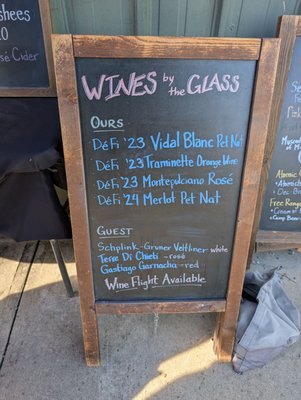 shees
20
osé Cider
WINES by the GLASS
OURS
DéFi '23 Vidal Blanc Pet Nat
DéFi '23 Traminette Orange Wine
DéFi '23 Montepulciano Rosé
DéFi '24 Merlot Pet Nat
GUEST
Schplink-Gruner Veltliner white
Terre Di Chieti -rosé
Gastiago Garnacha-red
Wine Flight Available
Muscat
Atomic
Free Rang